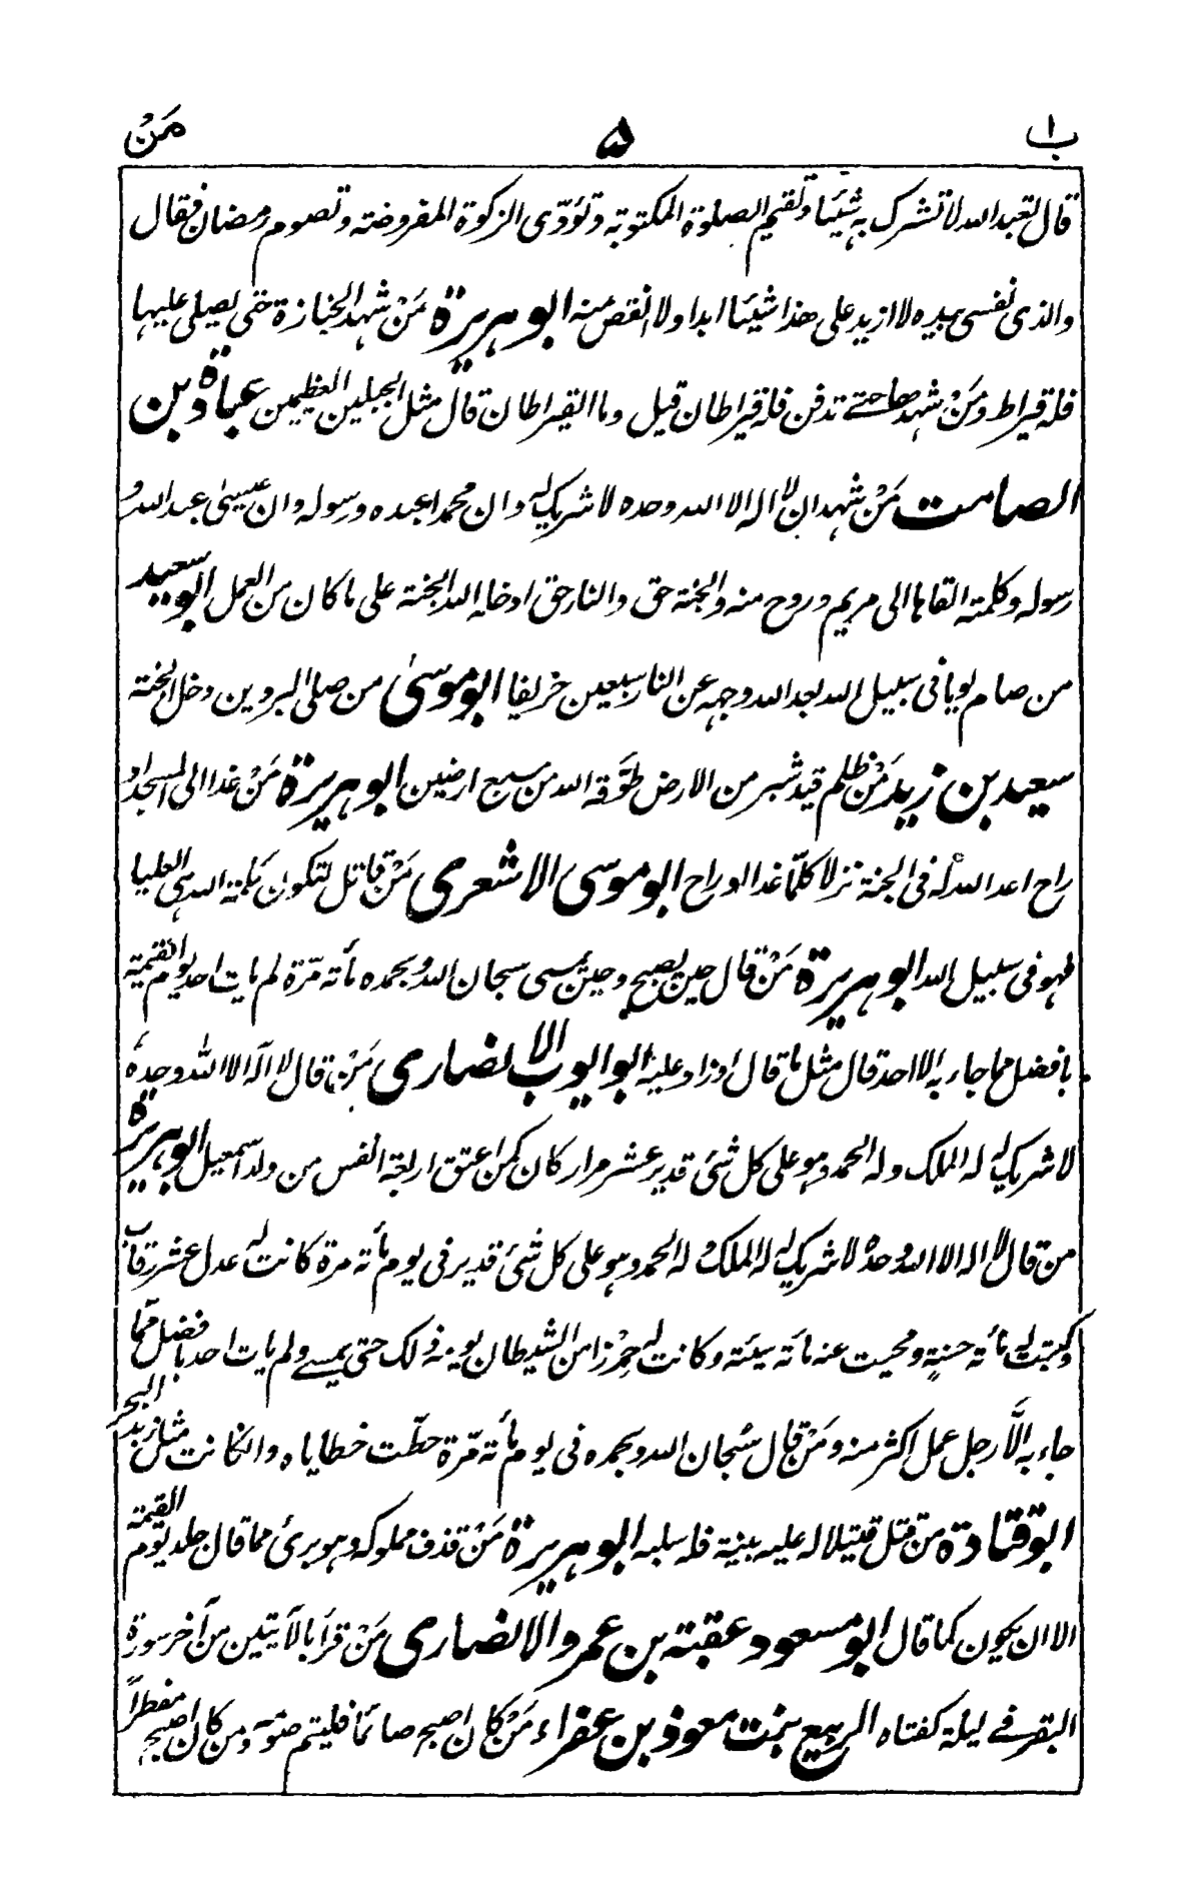 ب ١ ۵ مَنْ
قال تعبد الله لا تشرك به شيئا وتقيم الصلوة المكتوبة وتؤدّى الزكوة المفروضة وتصوم رمضان فقال
والذى نفسى بيده لا ازيد على هذا شيئا ابدا ولا انقص منه ابو هريرة مَنْ شهد الجنازة حتى يصلى عليها
فله قيراط ومَنْ شهدها حتے تدفن فله قيراطان قيل وما القيراطان قال مثل الجبلين العظيمين عبادة بن
الصامت مَنْ شهد ان لا اله الا الله وحده لا شريك له وان محمدا عبده ورسوله وان عيسىٰ عبد الله و
رسوله وكلمته القاها الى مريم وروح منه والجنة حق والنار حق ادخله الله الجنة على ما كان من العمل ابو سعيد
من صام يوما فى سبيل الله بعد الله وجهه عن النار سبعين خريفا ابو موسىٰ من صلى البردين دخل الجنة
سعيد بن زيد مَنْ ظلم قيد شبر من الارض طوّقه الله من سبع ارضين ابو هريرة مَنْ غدا الى المسجد او
راح اعد الله له فى الجنة نزلا كلّما غدا او راح ابو موسى الاشعرى مَنْ قاتل لتكون كلمة الله هى العليا
فهو فى سبيل الله ابو هريرة مَنْ قال حين يصبح وحين يمسى سبحان الله وبحمده مأته مرّة لم يات احد يوم القيمة
بافضل مما جاء به الا احد قال مثل ما قال او زاد عليه ابو ايوب الانصارى مَنْ قال لا اله الا الله وحده
لا شريك له له الملك وله الحمد وهو على كل شئ قدير عشر مرار كان كمن اعتق اربعة انفس من ولد اسمعيل ابو هريرة
من قال لا اله الا الله وحده لا شريك له له الملك و له الحمد وهو على كل شئ قدير فى يوم مأته مرة كانت له عدل عشر رقاب
وكتبت له مأته حسنةٍ ومحيت عنه مأته سيئة وكانت له حِرْزا من الشيطان يومه ذلك حتى يمسے ولم يات احد بافضل مّما
جاء به الّا رجل عمل اكثر منه ومَنْ قال سُبحان الله وبحمده فى يوم مأته مّرة حطّت خطاياه وان كانت مثل زبد البحر
ابو قتادة من قتل قتيلا له عليه بينة فله سلبه ابو هريرة مَنْ قذف مملوكه وهو برئ مما قال جلد يوم القيمة
الا ان يكون كما قال ابو مسعود عقبة بن عمرو الانصارى مَنْ قرأ بالآيتين من آخر سورة
البقر فے ليلة كفتاه الربيع بنت معوذ بن عفراء مَنْ كان اصبح صائما فليتم صومه ومن كان اصبح مفطراً